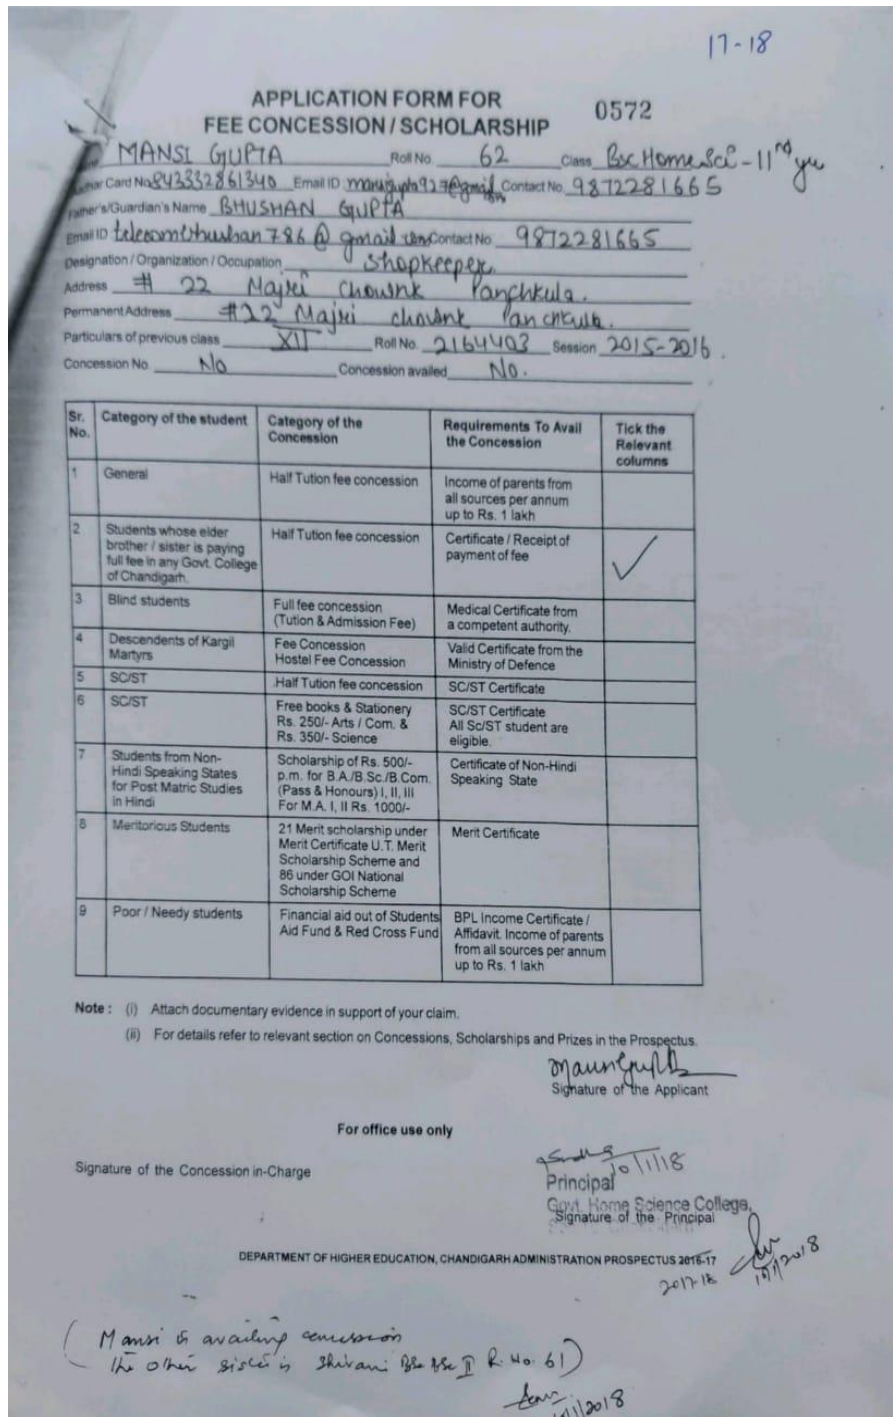 17-18
APPLICATION FORM FOR
FEE CONCESSION / SCHOLARSHIP
0572
MANSI GUPTA Roll No. 62 Class Bsc Home Sci - IInd yr
Card No. 843332861340 Email ID mansigupta927@gmail Contact No. 9872281665
Father's/Guardian's Name BHUSHAN GUPTA
Email ID telecombhushan786@gmail.com Contact No. 9872281665
Designation / Organization / Occupation Shopkeeper
Address # 22 Majri Chownk Panchkula.
Permanent Address #22 Majri chownk Panchkula.
Particulars of previous class XII Roll No. 2164403 Session 2015-2016.
Concession No. No Concession availed No.
Sr. No. Category of the student Category of the Concession Requirements To Avail the Concession Tick the Relevant columns
1 General Half Tution fee concession Income of parents from all sources per annum up to Rs. 1 lakh
2 Students whose elder brother / sister is paying full fee in any Govt. College of Chandigarh. Half Tution fee concession Certificate / Receipt of payment of fee ✓
3 Blind students Full fee concession (Tution & Admission Fee) Medical Certificate from a competent authority.
4 Descendents of Kargil Martyrs Fee Concession Hostel Fee Concession Valid Certificate from the Ministry of Defence
5 SC/ST Half Tution fee concession SC/ST Certificate
6 SC/ST Free books & Stationery Rs. 250/- Arts / Com. & Rs. 350/- Science SC/ST Certificate All Sc/ST student are eligible.
7 Students from Non-Hindi Speaking States for Post Matric Studies in Hindi Scholarship of Rs. 500/- p.m. for B.A./B.Sc./B.Com. (Pass & Honours) I, II, III For M.A. I, II Rs. 1000/- Certificate of Non-Hindi Speaking State
8 Meritorious Students 21 Merit scholarship under Merit Certificate U.T. Merit Scholarship Scheme and 86 under GOI National Scholarship Scheme Merit Certificate
9 Poor / Needy students Financial aid out of Students Aid Fund & Red Cross Fund BPL Income Certificate / Affidavit. Income of parents from all sources per annum up to Rs. 1 lakh
Note : (i) Attach documentary evidence in support of your claim.
(ii) For details refer to relevant section on Concessions, Scholarships and Prizes in the Prospectus.
Mansi Gupta
Signature of the Applicant
For office use only
10/1/18
Signature of the Concession in-Charge
Principal
Govt. Home Science College,
Signature of the Principal
DEPARTMENT OF HIGHER EDUCATION, CHANDIGARH ADMINISTRATION PROSPECTUS 2016-17
2017-18
(Mansi is availing concession
the other sister is Shivani Bsc HSc II R. No. 61)